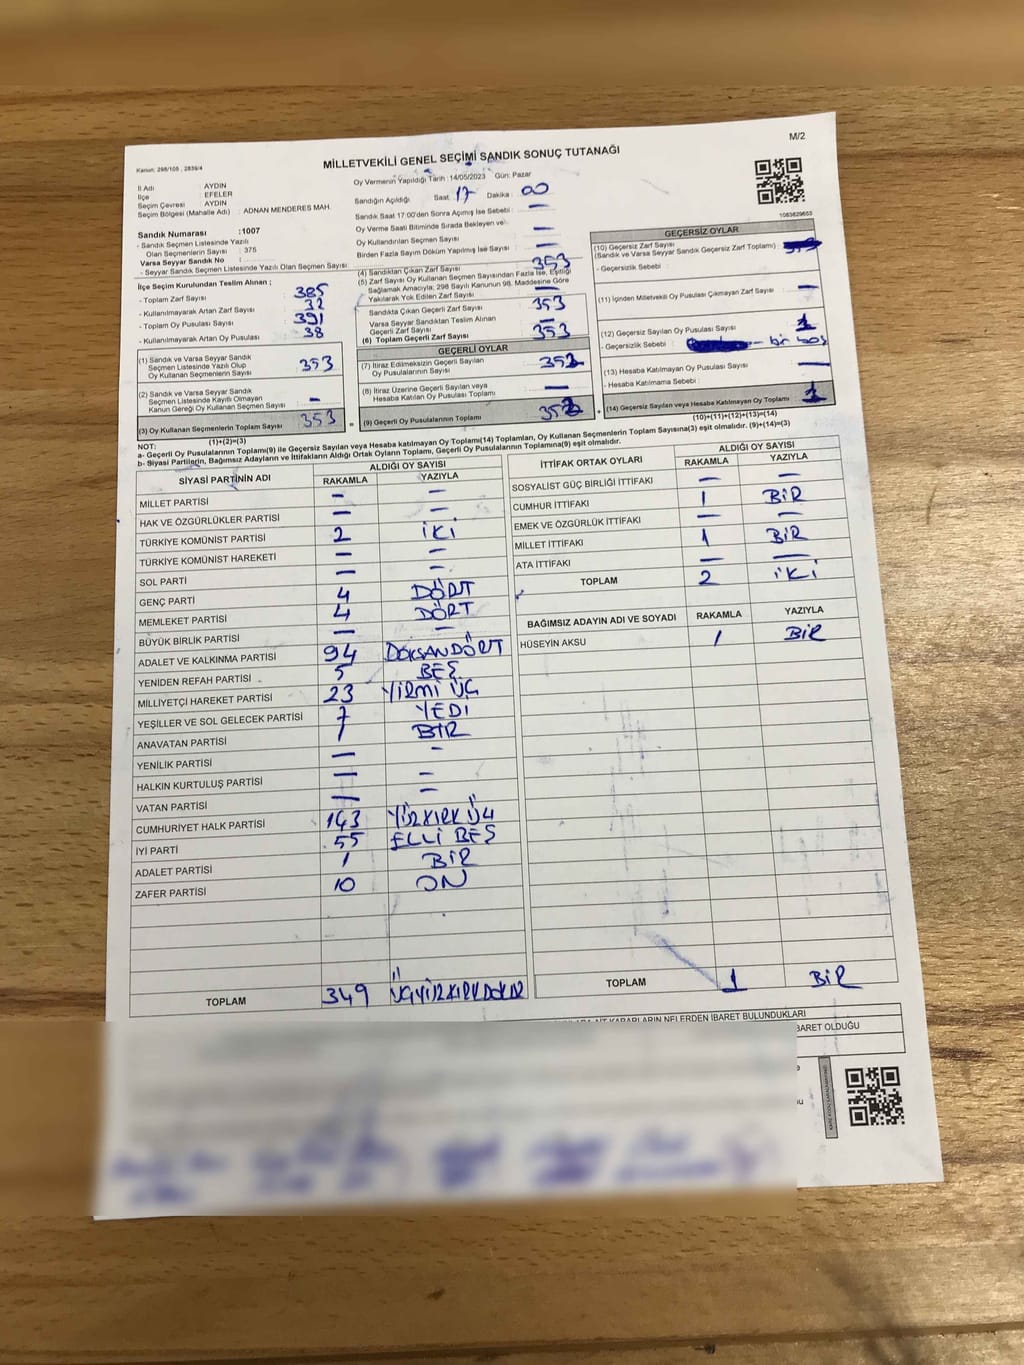 M/2
Kanun: 298/105 , 2839/4
MİLLETVEKİLİ GENEL SEÇİMİ SANDIK SONUÇ TUTANAĞI
İl Adı AYDIN
İlçe EFELER
Seçim Çevresi AYDIN
Seçim Bölgesi (Mahalle Adı) : ADNAN MENDERES MAH.
Sandık Numarası :1007
- Sandık Seçmen Listesinde Yazılı
Olan Seçmenlerin Sayısı : 375
Varsa Seyyar Sandık No :
- Seyyar Sandık Seçmen Listesinde Yazılı Olan Seçmen Sayısı
İlçe Seçim Kurulundan Teslim Alınan ;
- Toplam Zarf Sayısı : 385
- Kullanılmayarak Artan Zarf Sayısı : 32
- Toplam Oy Pusulası Sayısı : 391
- Kullanılmayarak Artan Oy Pusulası : 38
(1) Sandık ve Varsa Seyyar Sandık
Seçmen Listesinde Yazılı Olup
Oy Kullanan Seçmenlerin Sayısı 353
(2) Sandık ve Varsa Seyyar Sandık
Seçmen Listesinde Kayıtlı Olmayan
Kanun Gereği Oy Kullanan Seçmen Sayısı –
(3) Oy Kullanan Seçmenlerin Toplam Sayısı 353
(1)+(2)=(3)
Oy Vermenin Yapıldığı Tarih : 14/05/2023 Gün: Pazar
Sandığın Açıldığı Saat : 17 Dakika : 00
Sandık Saat 17:00'den Sonra Açılmış İse Sebebi : –
Oy Verme Saati Bitiminde Sırada Bekleyen ve
Oy Kullandırılan Seçmen Sayısı –
Birden Fazla Sayım Döküm Yapılmış İse Sayısı –
(4) Sandıktan Çıkan Zarf Sayısı 353
(5) Zarf Sayısı Oy Kullanan Seçmen Sayısından Fazla İse, Eşitliği
Sağlamak Amacıyla; 298 Sayılı Kanunun 98. Maddesine Göre
Yakılarak Yok Edilen Zarf Sayısı –
Sandıkta Çıkan Geçerli Zarf Sayısı 353
Varsa Seyyar Sandıktan Teslim Alınan
Geçerli Zarf Sayısı –
(6) Toplam Geçerli Zarf Sayısı 353
GEÇERLİ OYLAR
(7) İtiraz Edilmeksizin Geçerli Sayılan
Oy Pusulalarının Sayısı 352
(8) İtiraz Üzerine Geçerli Sayılan veya
Hesaba Katılan Oy Pusulası Toplamı –
(9) Geçerli Oy Pusulalarının Toplamı 352
1083629653
GEÇERSİZ OYLAR
(10) Geçersiz Zarf Sayısı
(Sandık ve Varsa Seyyar Sandık Geçersiz Zarf Toplamı) :
- Geçersizlik Sebebi :
(11) İçinden Milletvekili Oy Pusulası Çıkmayan Zarf Sayısı : –
(12) Geçersiz Sayılan Oy Pusulası Sayısı : 1
- Geçersizlik Sebebi : – bir boş
(13) Hesaba Katılmayan Oy Pusulası Sayısı : –
- Hesaba Katılmama Sebebi :
(14) Geçersiz Sayılan veya Hesaba Katılmayan Oy Toplamı : 1
(10)+(11)+(12)+(13)=(14)
NOT:
a- Geçerli Oy Pusulalarının Toplamı(9) ile Geçersiz Sayılan veya Hesaba katılmayan Oy Toplamı(14) Toplamları, Oy Kullanan Seçmenlerin Toplam Sayısına(3) eşit olmalıdır. (9)+(14)=(3)
b- Siyasi Partilerin, Bağımsız Adayların ve İttifakların Aldığı Ortak Oyların Toplamı, Geçerli Oy Pusulalarının Toplamına(9) eşit olmalıdır.
SİYASİ PARTİNİN ADI ALDIĞI OY SAYISI
RAKAMLA YAZIYLA
MİLLET PARTİSİ – –
HAK VE ÖZGÜRLÜKLER PARTİSİ – –
TÜRKİYE KOMÜNİST PARTİSİ 2 İKİ
TÜRKİYE KOMÜNİST HAREKETİ – –
SOL PARTİ – –
GENÇ PARTİ 4 DÖRT
MEMLEKET PARTİSİ 4 DÖRT
BÜYÜK BİRLİK PARTİSİ – –
ADALET VE KALKINMA PARTİSİ 94 DOKSANDÖRT
YENİDEN REFAH PARTİSİ 5 BEŞ
MİLLİYETÇİ HAREKET PARTİSİ 23 YİRMİ ÜÇ
YEŞİLLER VE SOL GELECEK PARTİSİ 7 YEDİ
ANAVATAN PARTİSİ 1 BİR
YENİLİK PARTİSİ – –
HALKIN KURTULUŞ PARTİSİ – –
VATAN PARTİSİ – –
CUMHURİYET HALK PARTİSİ 143 YÜZKIRK ÜÇ
İYİ PARTİ 55 ELLİ BEŞ
ADALET PARTİSİ 1 BİR
ZAFER PARTİSİ 10 ON
TOPLAM 349 ÜÇYÜZKIRKDOKUZ
İTTİFAK ORTAK OYLARI ALDIĞI OY SAYISI
RAKAMLA YAZIYLA
SOSYALİST GÜÇ BİRLİĞİ İTTİFAKI – –
CUMHUR İTTİFAKI 1 BİR
EMEK VE ÖZGÜRLÜK İTTİFAKI – –
MİLLET İTTİFAKI 1 BİR
ATA İTTİFAKI – –
TOPLAM 2 İKİ
BAĞIMSIZ ADAYIN ADI VE SOYADI RAKAMLA YAZIYLA
HÜSEYİN AKSU 1 BİR
TOPLAM 1 BİR
KARARLARIN NELERDEN İBARET BULUNDUKLARI
BARET OLDUĞU